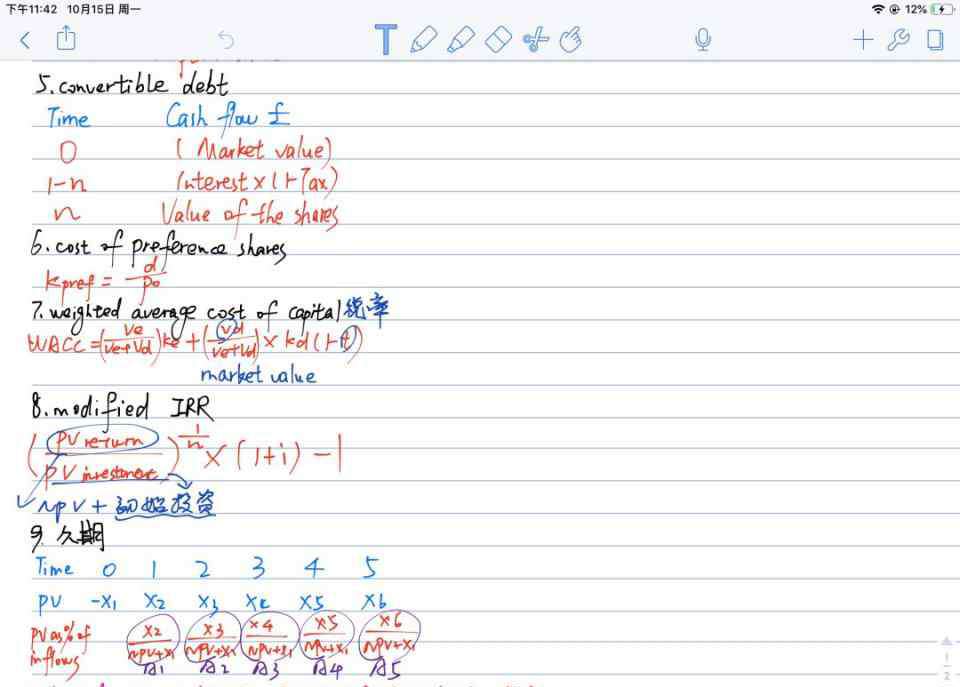 下午11:42 10月15日 周一 12%
5.convertible debt
Time Cash flow £
0 (Market value)
1-n Interest x(1-Tax)
n Value of the shares
6.cost of preference shares
kpref = d/P0
7.weighted average cost of capital 税率
WACC=(Ve/Ve+Vd)ke+(Vd/Ve+Vd)×kd(1-t)
market value
8.modified IRR
(PV return/PV investment)^1/n×(1+i)-1
NPV+初始投资
9.久期
Time 0 1 2 3 4 5
PV -X1 X2 X3 X4 X5 X6
PV as % of inflows X2/NPV+X1 X3/NPV+X1 X4/NPV+X1 X5/NPV+X1 X6/NPV+X1
A1 A2 A3 A4 A5
1/2